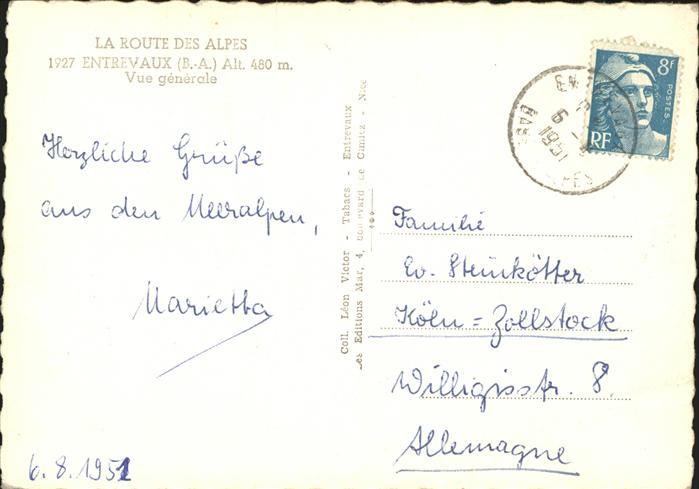 LA ROUTE DES ALPES
1927 ENTREVAUX (B.-A.) Alt. 480 m.
Vue générale
Herzliche Grüße
aus den Meeralpen,
Marietta
6.8.1951
Coll. Léon Victor - Tabacs - Entrevaux
Les Editions Mar, 4, boulevard de Cimiez - Nice
8F
POSTES
RF
6 -
1951
Familie
Ev. Steinkötter
Köln=Zollstock
Willigisstr. 8.
Allemagne